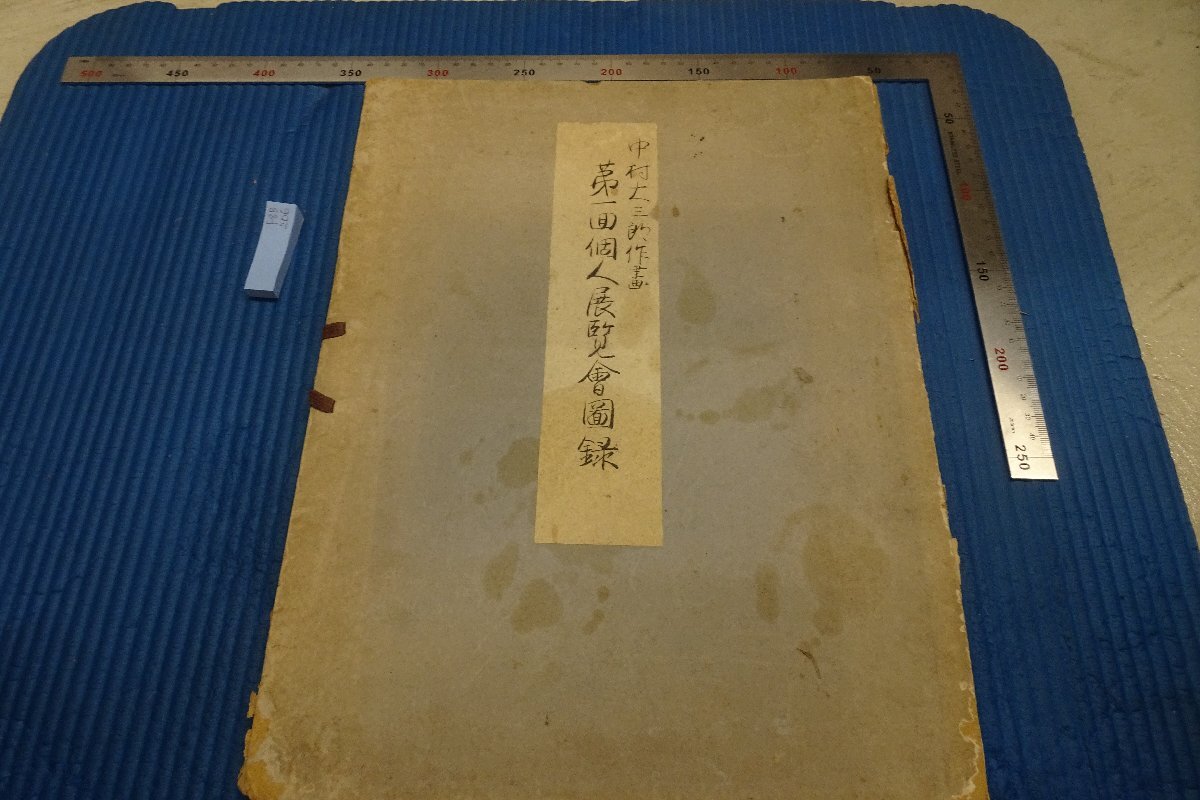 中村大三郎作畫
第一回個人展覽會圖錄
500 450 400 350 300 250 200 150 100 50
50
100
150
200
250